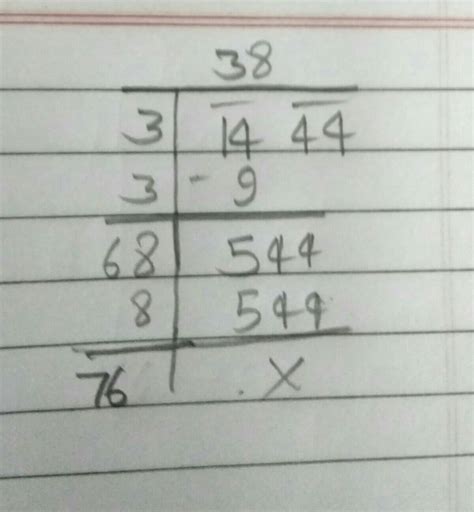 38
3 14 44
3 - 9
68 544
8 544
76 . X